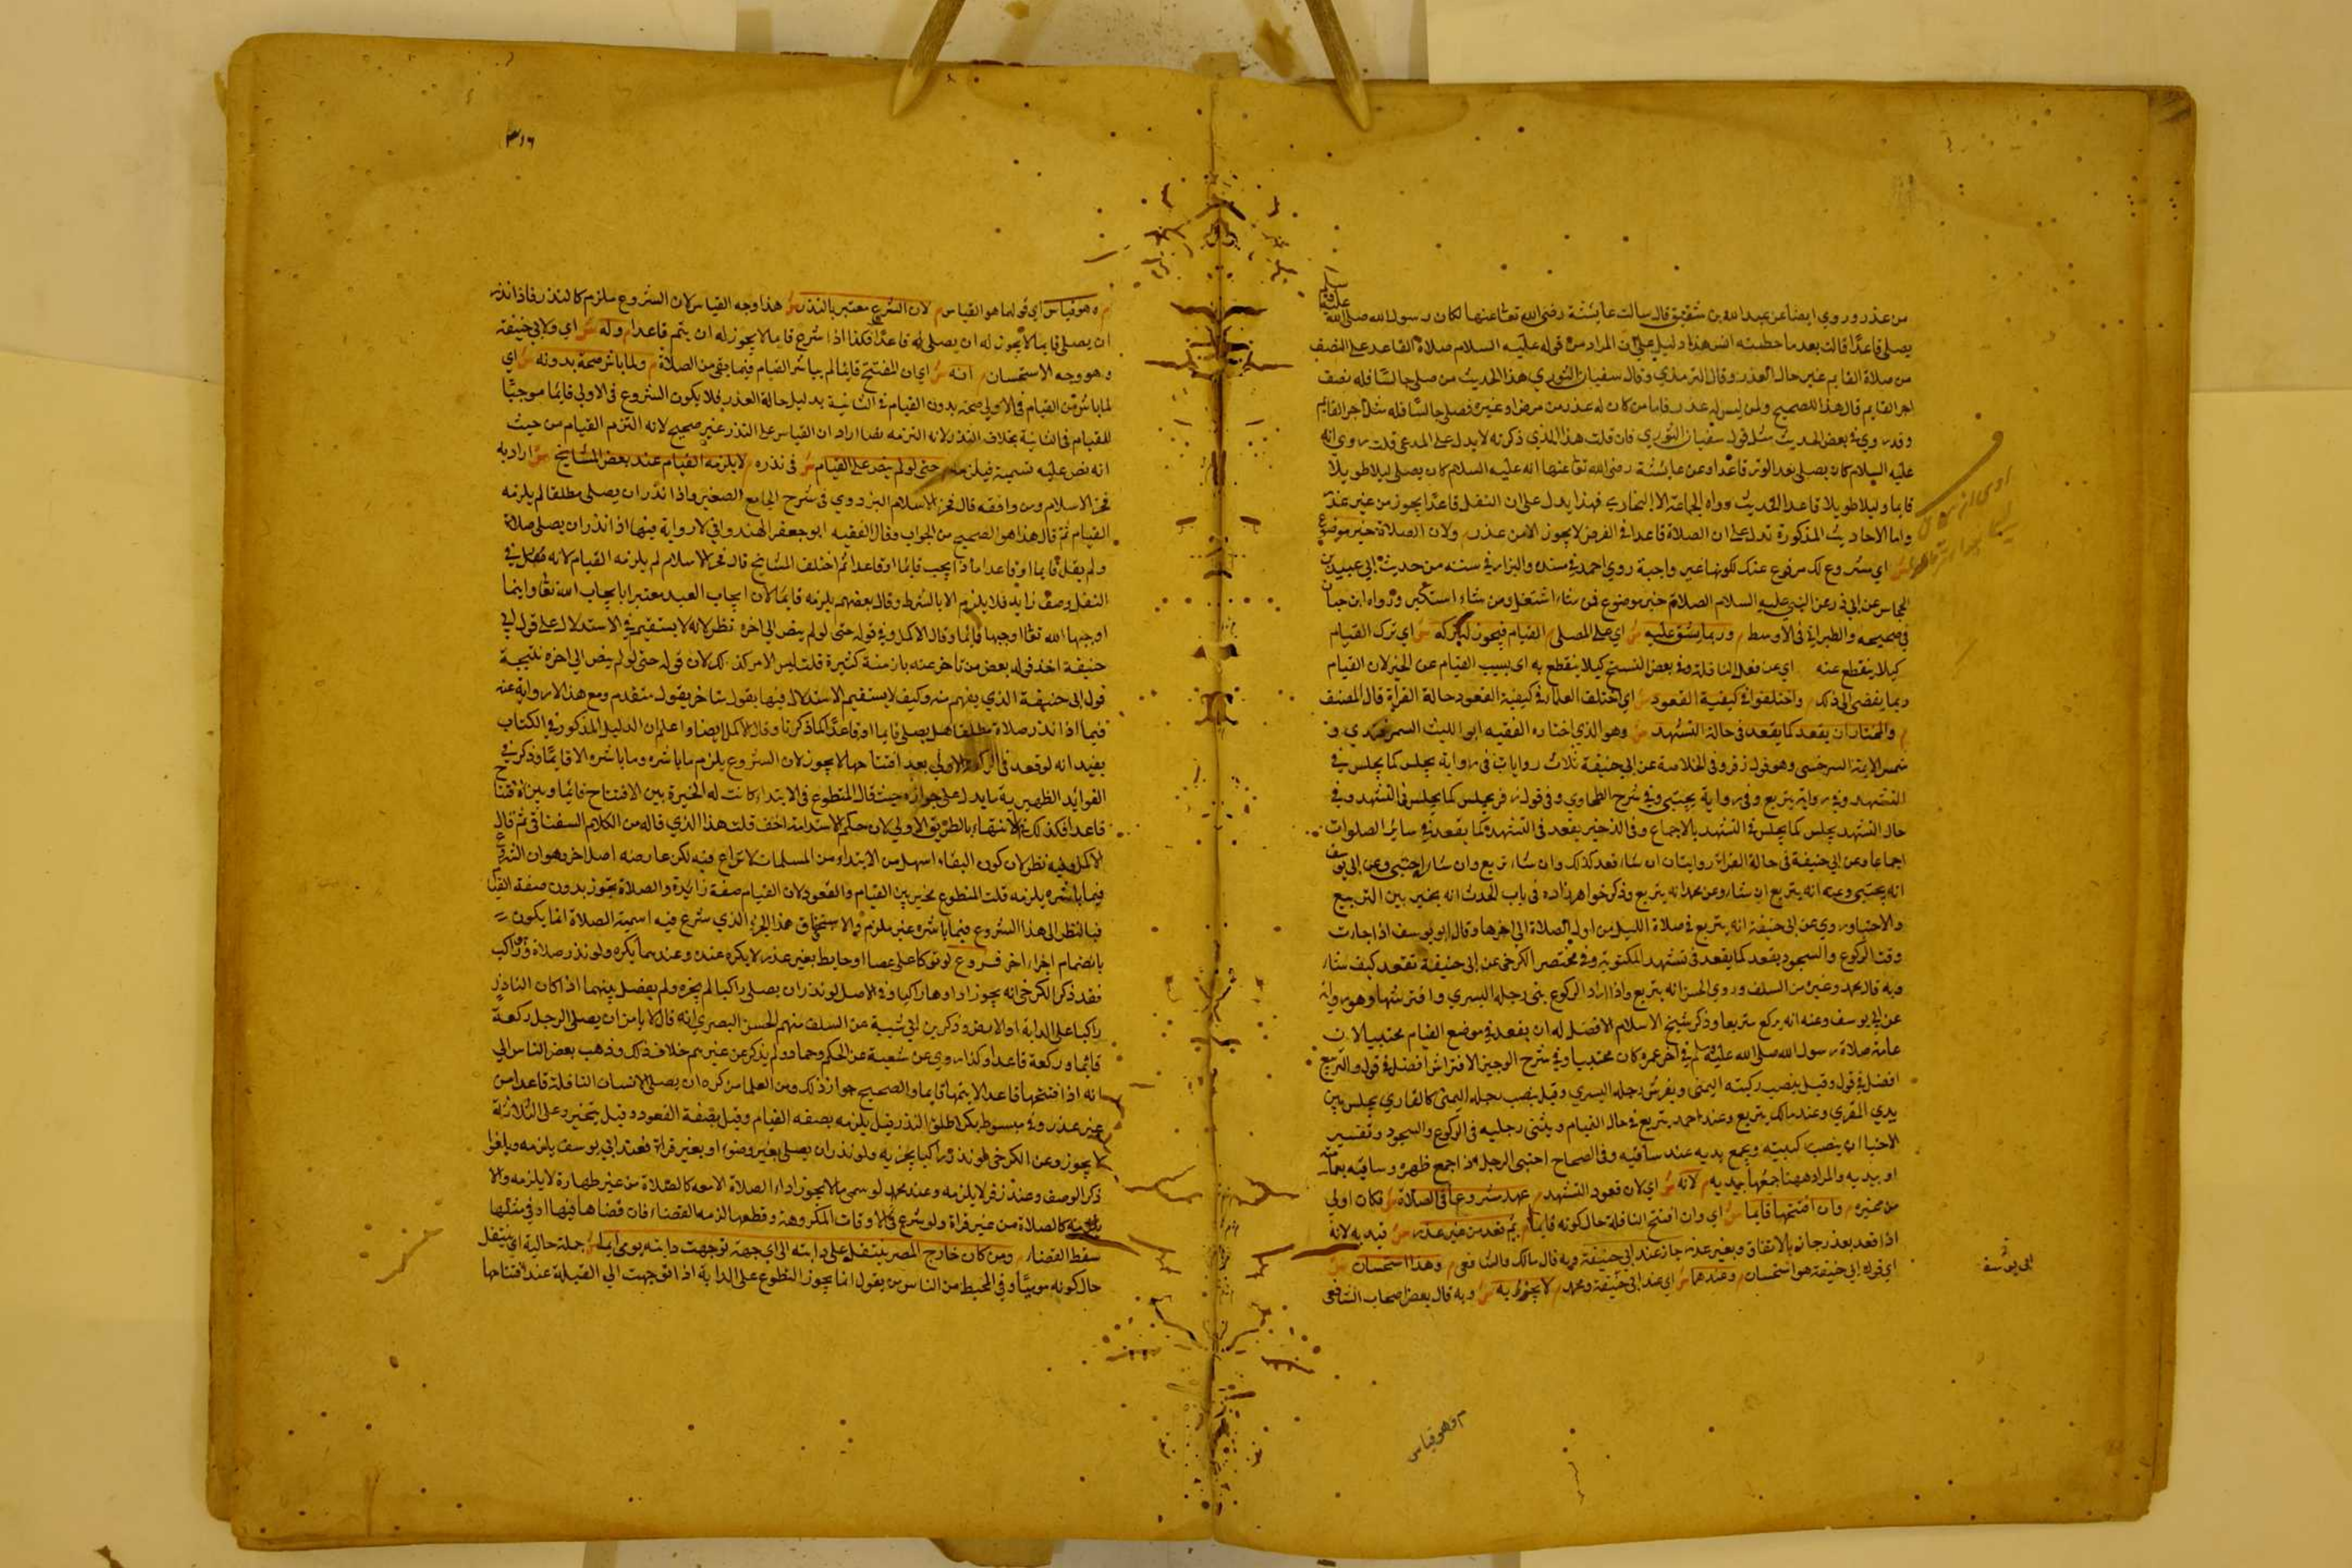 من عذر وروي ايضا عن عبد الله بن شقيق قال سالت عايشة رضي الله تعا عنها لكان رسول الله صلى الله عليه وسلم
يصلي قاعدا قالت بعد ما حطمته الناس هذا دليل على ان المراد من قوله عليه السلام صلاة القاعد على النصف
من صلاة القايم غير حال العذر وقال الترمذي وقال سفيان الثوري هذا الحديث من صلى جالسا فله نصف
اجر القايم قال هذا للصحيح ولمن ليس له عذر فاما من كان له عذر من مرض او غيره فصلى جالسا فله مثل اجر القايم
وقد روي في بعض الحديث مثل قول سفيان الثوري فان قلت هذا الذي ذكرته لا يدل على المدعى قلت روي انه
عليه السلام كان يصلي بعد الوتر قاعدا وعن عايشة رضي الله تعا عنها انه عليه السلام كان يصلي ليلا طويلا
قايما وليلا طويلا قاعدا الحديث رواه الجماعة الا البخاري فهذا يدل على ان النفل قاعدا يجوز من غير عذر
واما الاحاديث المذكورة تدل على ان الصلاة قاعدا في الفرض لا يجوز الا من عذر م ولان الصلاة خير موضوع
ش اي مشروع لك مرفوع عنك لكونها غير واجبة روي احمد في مسنده والبزار في سننه من حديث ابي عبيد بن
الحسحاس عن ابي ذر عن النبي عليه السلام الصلاة خير موضوع فمن شاء اشتغل ومن شاء استكثر ورواه ابن حبان
في صحيحه والطبراني في الاوسط م وربما يشق عليه ش اي على المصلي م القيام فيجوز له تركه ش اي ترك القيام
كيلا ينقطع عنه اي عن فعل النافلة وفي بعض النسخ كيلا ينقطع به اي بسبب القيام عن الخير لان القيام
ربما يفضي الى ذلك م واختلفوا في كيفية القعود ش اي اختلف العلماء في كيفية القعود حالة القراة قال المصنف
م والمختار ان يقعد كما يقعد في حالة التشهد ش وهو الذي اختاره الفقيه ابو الليث السمرقندي و
شمس الايمة السرخسي وهو قول زفر وفي الخلاصة عن ابي حنيفة ثلاث روايات في رواية يجلس كما يجلس في
التشهد وفي رواية يتربع وفي رواية يحتبي وفي شرح الطحاوي وفي قول زفر يجلس كما يجلس في التشهد وفي
حال التشهد يجلس كما يجلس في التشهد بالاجماع وفي الذخيرة يقعد في التشهد كما يقعد في سائر الصلوات
اجماعا وعن ابي حنيفة في حالة القراة روايتان ان شاء قعد كذلك وان شاء تربع وان شاء احتبى وعن ابي يوسف
انه يحتبي وعنه انه يتربع ان شاء وعن محمد انه يتربع وذكر خواهر زاده في باب الحدث انه يخير بين التربيع
والاحتباء وروي عن ابي حنيفة انه يتربع في صلاة الليل من اول الصلاة الى اخرها وقال ابو يوسف اذا جاءت
وقت الركوع والسجود يقعد كما يقعد في تشهد المكتوبة وفي مختصر الكرخي عن ابي حنيفة تقعد كيف شاء
وبه قال محمد وغيره من السلف وروي الحسن انه يتربع واذا اراد الركوع ثنى رجله اليسري وافترشها وهو رواية
عن ابي يوسف وعنه انه يركع متربعا وذكر شيخ الاسلام الافضل له ان يقعد في موضع القيام محتبيا لان
عامة صلاة رسول الله صلى الله عليه وسلم في اخر عمره كان محتبيا وفي شرح الوجيز الافتراش افضل في قول والتربيع
افضل في قول وقيل ينصب ركبته اليمنى ويفرش رجله اليسري وقيل ينصب رجله اليمنى كالقاري يجلس بين
يدي المقري وعند مالك يتربع وعند احمد يتربع في حال القيام ويثنى رجليه في الركوع والسجود وتفسير
الاحتباء ان ينصب ركبتيه ويجمع يديه عند ساقيه وفي الصحاح احتبى الرجل اذا جمع ظهره وساقيه بعمامته
او بيديه والمراد ههنا جمعها بيديه م لانه ش اي لان قعود التشهد م عهد مشروعا في الصلاة ش فكان اولى
من غيره م وان افتتحها قايما ش اي وان افتتح النافلة حال كونه قايما م ثم قعد من غير عذر ش قيد به لانه
اذا قعد بعذر جاز بالاتفاق وبغير عذر جاز عند ابي حنيفة وبه قال مالك والشافعي م وهذا استحسان ش
اي قول ابي حنيفة هو استحسان م وعندهما ش اي عند ابي حنيفة ومحمد م لا يجزيه ش وبه قال بعض اصحاب الشافعي
ابي يوسف
م وهو قياس
٣١٦
م وهو قياس اي قولهما هو القياس م لان الشرع معتبر بالنذر ش هذا وجه القياس لان الشروع ملزم كالنذر فاذا نذر
ان يصلي قايما لا يجوز له ان يصلي قاعدا فكذا اذا شرع قايما لا يجوز له ان يتم قاعدا م وله ش اي ولابي حنيفة
وهو وجه الاستحسان م انه ش اي ان المفتتح قايما لم يباشر القيام فيما بقي من الصلاة م ولما باشر صحة بدونه ش اي
لما باشر من القيام في الاولى صحة بدون القيام في الثانية بدليل حالة العذر فلا يكون الشروع في الاولى قايما موجبا
للقيام في الثانية بخلاف النذر لانه التزمه نصا اراد ان القياس على النذر غير صحيح لانه التزم القيام من حيث
انه نص عليه تسمية فيلزمه م حتى لو لم ينص على القيام ش في نذره م لا يلزمه القيام عند بعض المشايخ ش اراد به
فخر الاسلام ومن وافقه قال فخر الاسلام البزدوي في شرح الجامع الصغير واذا نذر ان يصلي مطلقا لم يلزمه
القيام ثم قال هذا هو الصحيح من الجواب وقال الفقيه ابو جعفر الهندواني لا رواية فيها اذا نذر ان يصلي صلاة
ولم يقل قايما او قاعدا ماذا يجب قايما او قاعدا ثم اختلف المشايخ قال فخر الاسلام لم يلزمه القيام لانه فضل في
النفل وصف زايد فلا يلزم الا بالشرط وقال بعضهم يلزمه قايما لان ايجاب العبد معتبر بايجاب الله تعا وايما
اوجبها الله تعا اوجبها قايما وقال الاكمل وفي قوله حتى لو لم ينص الى اخره نظر لانه لا يستقيم في الاستدلال على قول ابي
حنيفة اخذ قول بعض من تاخر عنه بازمنة كثيرة قلت ليس الامر كذلك لان قوله حتى لو لم ينص الى اخره نتيجة
قول ابي حنيفة الذي يفهم منه وكيف لا يستقيم الاستدلال فيها بقول متاخر بقول متقدم ومع هذا الا رواية عنه
فيما اذا نذر صلاة مطلقا هل يصلي قايما او قاعدا كما ذكرنا وقال الاكمل ايضا واعلم ان الدليل المذكور في الكتاب
يفيد انه لو قعد في الركعة الاولى بعد افتتاحها لا يجوز لان الشروع يلزم ما باشره وما باشره الا قايما وذكر في
الفوائد الظهيرية ما يدل على جوازه حيث قال المتطوع في الابتداء كانت له الخيرة بين الافتتاح قايما وبين الافتتاح
قاعدا فكذلك في الانتهاء بالطريق الاولى لان حكم الاستدامة اخف قلت هذا الذي قاله من الكلام السغناقي ثم قال
الاكمل وفيه نظر لان كون البقاء اسهل من الابتداء من المسلمات لا نزاع فيه لكن عارضه اصل اخر وهو ان الشروع
فيما باشره يلزمه قلت المتطوع مخير بين القيام والقعود لان القيام صفة زائدة والصلاة تجوز بدون صفة القيام
فبالنظر الى هذا الشروع فيما باشره غير ملزم هذا الجزء الذي شرع فيه اسمية الصلاة انما يكون
بانضمام اجزاء اخر فروع لو توكا على عصا او حايط بغير عذر لا يكره عنده وعندهما يكره ولو نذر صلاة وهو راكب
فقد ذكر الكرخي انه يجوز اداوها راكبا وفي الاصل لو نذر ان يصلي راكبا لم يجزه ولم يفصل بينهما اذا كان الناذر
راكبا على الدابة او الارض وذكر ابن ابي شيبة عن السلف منهم الحسن البصري انه قال لا باس ان يصلي الرجل ركعة
قايما وركعة قاعدا وكذا روي عن شعبة عن الحكم وحماد ولم يذكر عن غيرهم خلاف ذلك وذهب بعض الناس الى
انه اذا افتتحها قاعدا لا يتمها قايما والصحيح جواز ذلك ومن العلما من كره ان يصلي الانسان النافلة قاعدا من
غير عذر وفي مبسوط بكر اطلق النذر قيل يلزمه بصفه القيام وقيل بصفة القعود وقيل يتخير وعلى الثلاثة
لا يجوز وعن الكرخي لو نذر راكبا يجزيه ولو نذر ان يصلي بغير وضوء او بغير قراة فعند ابي يوسف يلزمه ويلغوا
ذكر الوصف وعند زفر لا يلزمه وعند محمد لو سمى ما لا يجوز اداء الصلاة الا معه كالصلاة من غير طهارة لا يلزمه والا
يلزمه كالصلاة من غير قراة ولو شرع في الاوقات المكروهة وقطعها لزمه القضاء فان قضاها فيها او في مثلها
سقط القضاء م ومن كان خارج المصر يتنفل على دابته الى اي جهة توجهت دابته يومي ايماء ش جملة حالية اي يتنفل
حال كونه موميا وفي المحيط من الناس من يقول انما يجوز التطوع على الدابة اذا توجهت الى القبلة عند افتتاحها